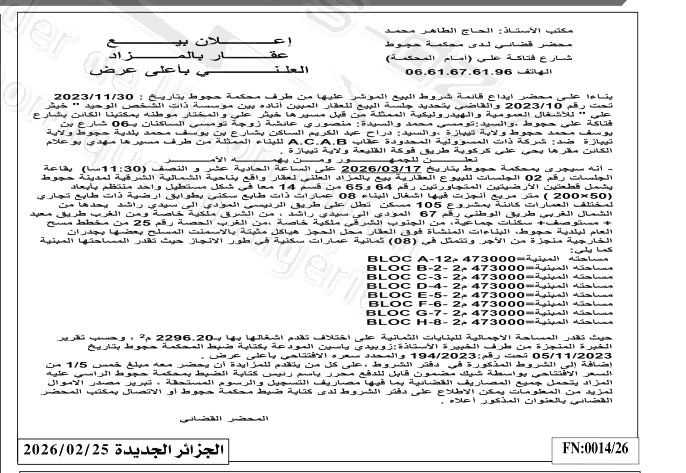 مكتب الأستاذ: الحاج الطاهر محمد
محضر قضائي لدى محكمة حجوط
شارع فتاكة علي (أمام المحكمة)
الهاتف 06.61.67.61.96
إعـــــلان بيع
عقـــــار بالمـــــزاد
العلنـــي بأعلى عرض
بناءا على محضر ايداع قائمة شروط البيع المؤشر عليها من طرف محكمة حجوط بتاريخ : 2023/11/30
تحت رقم 2023/10 والقاضي بتحديد جلسة البيع للعقار المبين أدناه بين موسسة ذات الشخص الوحيد " خيثر
علي " للأشغال العمومية والهيدروليكية الممثلة من قبل مسيرها خيثر علي والمختار موطنه بمكتبنا الكائن بشارع
فتاكة علي حجوط ،والسيد:تومسي محمد والسيدة: منصوري عائشة زوجة تومسي الساكنان ب06 شارع بن
يوسف محمد حجوط ولاية تيبازة ،والسيد: دراح عبد الكريم الساكن بشارع بن يوسف محمد بلدية حجوط ولاية
تيبازة ضد: شركة ذات المسؤولية المحدودة عقاب A.C.A.B للبناء الممثلة من طرف مسيرها مهدي بوعلام
الكائن مقرها بحي علي كركوبة طريق فوكة القليعة ولاية تيبازة .
نعلـــــن للجمهـــــور ومـــــن يهمـــــه الأمـــــر
- أنه سيجرى بمحكمة حجوط بتاريخ 2026/03/17 على الساعة الحادية عشر و النصف (11:30سا) بقاعة
الجلسات رقم 02 الجلسات للبيوع العقارية بيع بالمزاد العلني لعقار واقع بناحية الشمالية الشرقية لمدينة حجوط
يشمل قطعتين الأرضيتين المتجاورتين رقم 64 و65 من قسم 14 معا في شكل مستطيل واحد منتظم بأبعاد
(50×200 ) متر مربع أنجزت فيها أشغال البناء 08 عمارات ذات طابع سكني بطوابق أرضية ذات طابع تجاري
لمختلف العمارات كائنة بمشروع 105 مسكن تطل على طريق الرئيسي المؤدي الى سيدي راشد يحدها من
الشمال الغربي طريق الوطني رقم 67 المؤدي الى سيدي راشد ، من الشرق ملكية خاصة ومن الغرب طريق معبد
+ مستوصف+ سكنات جماعية، من الجنوب الشرقي ملكية خاصة ،من الغرب الحصة رقم 25 من مخطط مسح
العام لبلدية حجوط، البناءات المنشاة فوق العقار محل الحجز هياكل مثبتة بالاسمنت المسلح بعضها بجدران
الخارجية منجزة من الآجر وتتمثل في (08) ثمانية عمارات سكنية في طور الانجاز حيث تقدر المساحتها المبنية
كما يلي:
BLOC A-12م 473000=مساحته المبنية
BLOC B-2- 2م 473000=مساحته المبنية
BLOC C-3- 2م 473000=مساحته المبنية
BLOC D-4- 2م 473000=مساحته المبنية
BLOC E-5- 2م 473000=مساحته المبنية
BLOC F-6- 2م 473000=مساحته المبنية
BLOC G-7- 2م 473000=مساحته المبنية
BLOC H-8- 2م 473000=مساحته المبنية
حيث تقدر المساحة الاجمالية للبنايات الثمانية على اختلاف تقدم اشغالها بها ب2296.20 م² ، وحسب تقرير
الخبرة المنجزة من طرف الخبيرة الأستاذة:زوبيدي ياسين المودعة بكتابة ضبط المحكمة حجوط بتاريخ
05/11/2023 تحت رقم: 194/2023 والمحدد سعره الافتتاحي بأعلى عرض .
إضافة إلى الشروط المذكورة في دفتر الشروط ،على كل من يتقدم للمزايدة أن يحضر معه مبلغ خمس 1/5 من
السعر الافتتاحي بواسطة شيك مضمون قابل للدفع محرر باسم رئيس كتابة الضبط بمحكمة حجوط الراسي عليه
المزاد يتحمل جميع المصاريف القضائية بما فيها مصاريف التسجيل والرسوم المستحقة ، تبرير مصدر الاموال
لمزيد من المعلومات يمكن الاطلاع على دفتر الشروط لدى كتابة ضبط محكمة حجوط أو الاتصال بمكتب المحضر
القضائي بالعنوان المذكور أعلاه .
المحضر القضائي
FN:0014/26
الجزائر الجديدة 2026/02/25